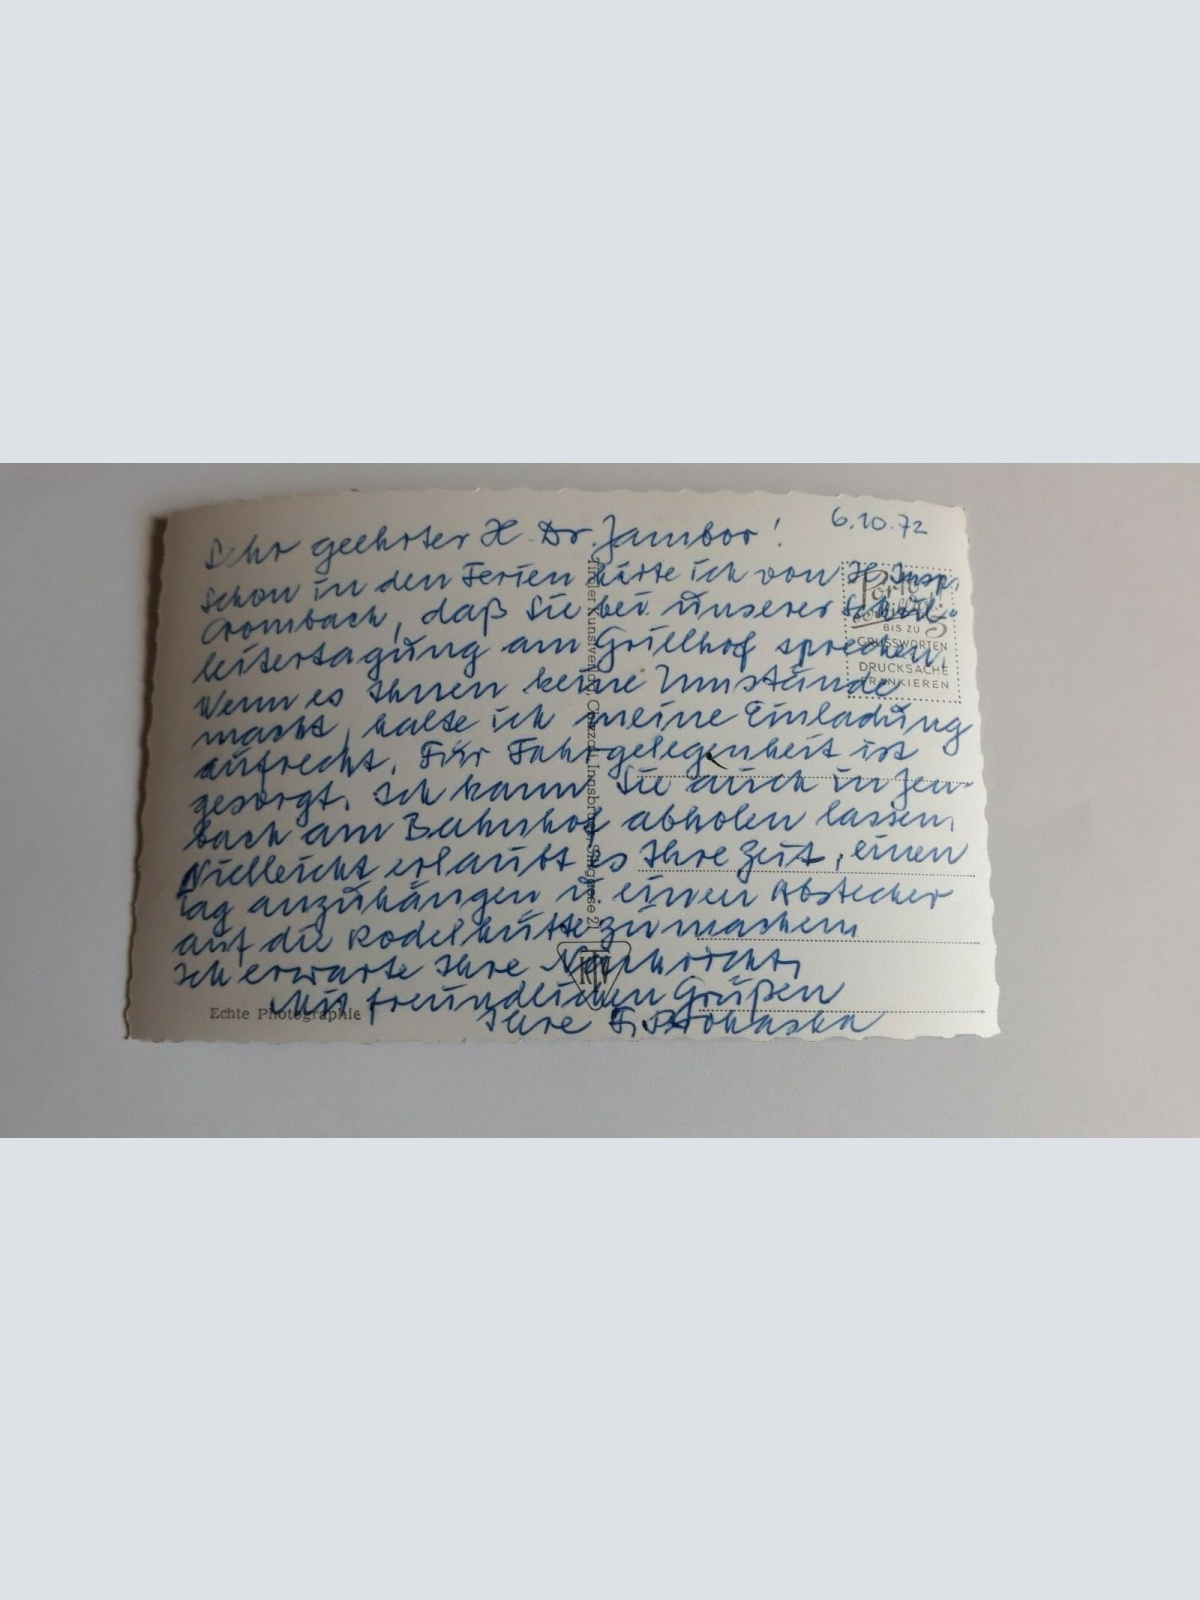 6.10.72
Sehr geehrter H. Dr. Jambor!
Schon in den Ferien hörte ich von H. Insp.
Crombach, daß Sie bei unserer Schul-
leitertagung am Grillhof sprechen.
Wenn es Ihnen keine Umstände
macht, halte ich meine Einladung
aufrecht. Für Fahrgelegenheit ist
gesorgt. Ich kann Sie auch in Jen-
bach am Bahnhof abholen lassen.
Vielleicht erlaubt es Ihre Zeit, einen
Tag anzuhängen u. einen Abstecher
auf die Rodelhütte zu machen.
Ich erwarte Ihre Nachricht,
Mit freundlichen Grüßen
Ihre
Porto
BIS ZU 5
GRUSSWORTEN
DRUCKSACHE
FRANKIEREN
Tiroler Kunstverlag, Chizzali, Innsbruck,
Echte Photographie